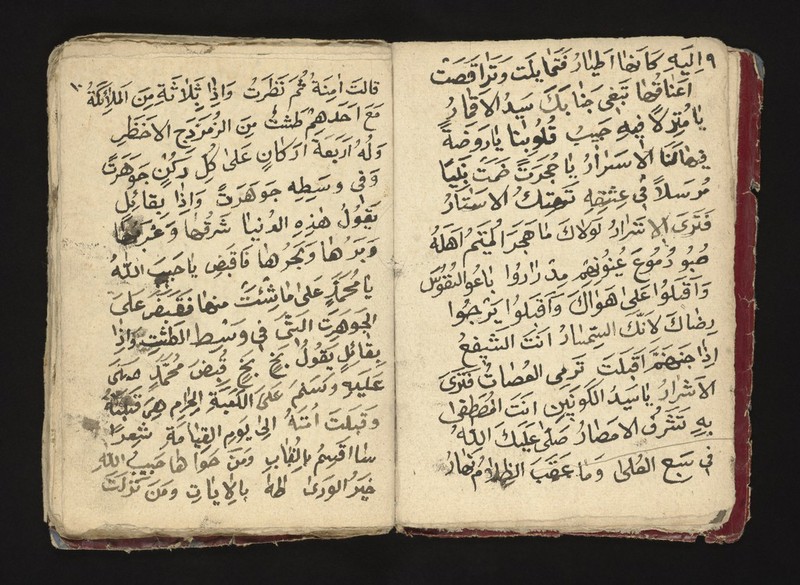 ٩ اليه كانها اطيار فتمايلت وتراقصت
اعناقها تبغى جنابك سيد الاقمار
يا منزلا فيه حبيب قلوبنا يا روضة
فيها لنا الاسرار يا حجرت ضمت نبيا
مرسلا في عشقه تهتك الاستار
فترى الاشرار لولاك ما هجر المتيم اهله
صبو دموع عيونهم مدرارا باعو النفوس
واقبلوا على هواك واقبلوا يرجوا
رضاك لانك السمسار انت الشفيع
اذا جهنم اقبلت ترمى العصات فترى
الاشرار يا سيد الكونين انت المصطفى
به تتشرف الامصار صلى عليك الله
في سبع العلى وما عقب الظلام نهار
١٠ قالت امنة ثم نظرت واذا بثلاثة من الملائكة
مع احدهم طشت من الزمردج الاخظر
وله اربعة اركان على كل ركن جوهرت
وفى وسطه جوهرت واذا بقائل
يقول هذه الدنيا شرقها وغربها
وبرها وبحرها فاقبض يا حبيب الله
يا محمد على ما شئت منها فقبض على
الجوهرت التى في وسط الطشت واذا
بقائل يقول بخ بخ قبض محمد صلى
عليه وسلم على الكعبة الحرام هي قبلته
وقبلت امته الى يوم القيامة شعرا
سا اقسم بالقباب ومن حواها حبيب الله
خير الورى طه بالايات ومن نزلت